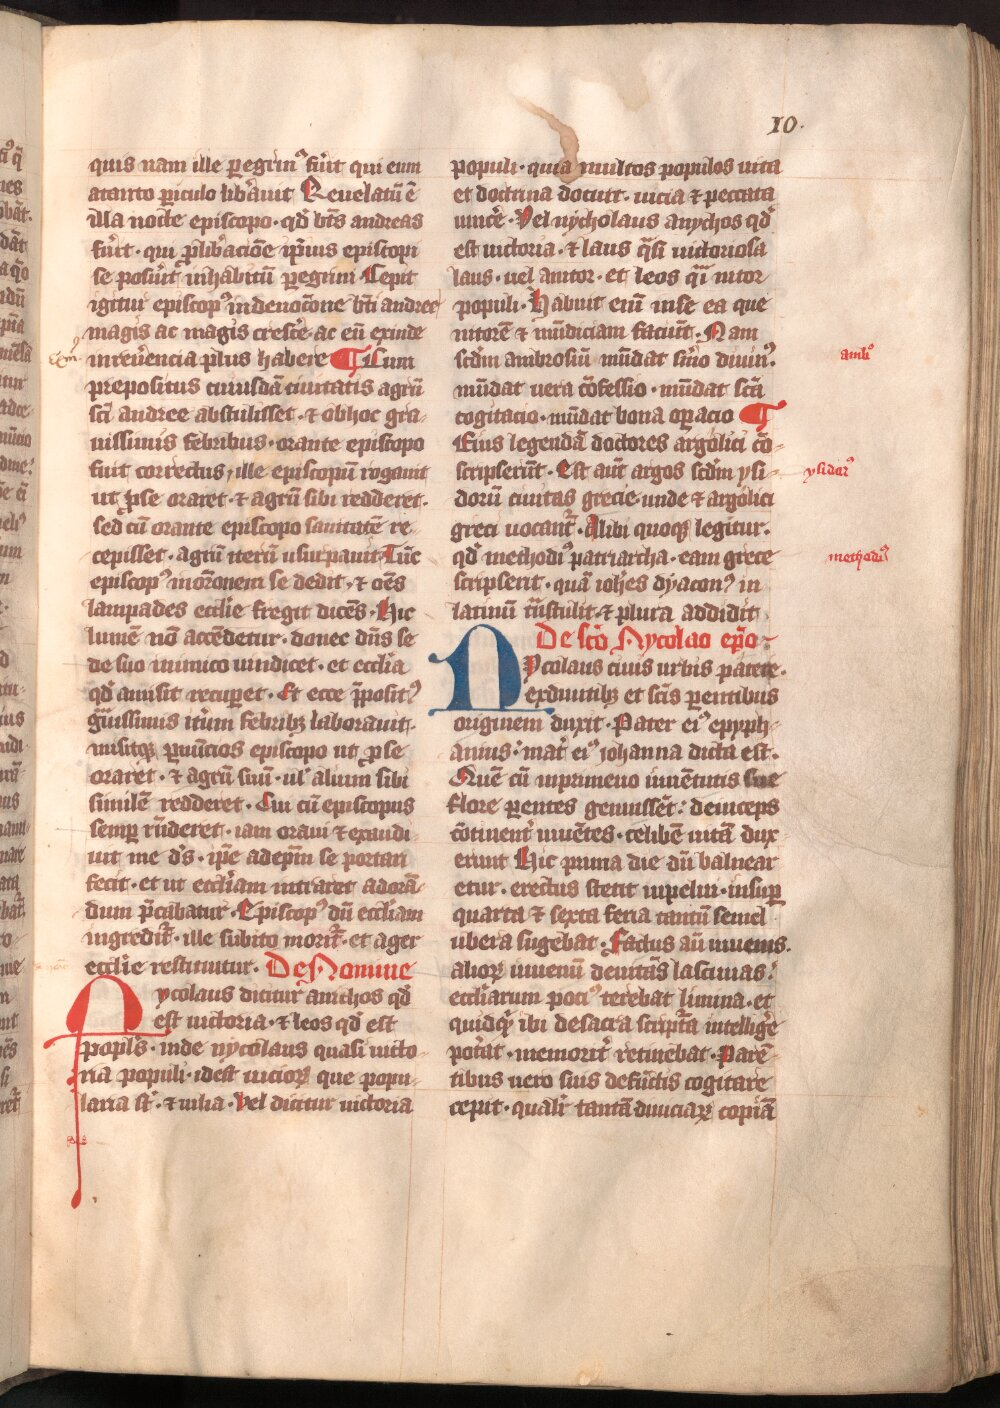 10.
quis nam ille peregrinꝰ fu̅it qui eum
atanto piculo lib̾auit Reuelatu̅ e̅
illa nocte episcopo · qd̾ bt̅s andreas
fu̅it · qui p̱libac̅io̅e ip̅ius episcopi
se posu̅it inhabitu̅ peg̾ni Cepit
igitur episcopꝰ indeuoc̅one bt̅i andree
magis ac magis cresce̅ · ac eu̅ exinde
inreu̅encia plus habere ¶ Cum
prepositus cuiusda̅ ciuitatis agru̅
sc̅i andree abstulisset · ⁊ obhoc gra-
uissimis febribus · orante episcopo
fuit correctus, ille episcopu̅ rogauit
ut ꝓse oraret · ⁊ agru̅ sibi redderet ·
sed cu̅ orante episcopo sanitate̅ re-
cepisset · agru̅ iteru̅ usurpauit Tu̅c
episcopꝰ inor̅onem se dedit · ⁊ om̅s
lampades eccl̅ie fregit dice̅s · Hic
lume̅ no̅ acce̅detur · donec dn̅s se
de suo inimico uindicet · et eccl̅ia
qd̾ amisit recuꝑet · Et ecce p̅positꝰ
g̾uissimis it̾um febribꝫ laborauit ·
misitqꝫ ꝑnu̅cios episcopo ut ꝓse
oraret · ⁊ agru̅ suu̅ · ul̾ alium sibi
simile̅ redderet · Cui cu̅ episcopus
semꝑ rn̅deret · iam oraui ⁊ exaudi-
uit me d̾s · ip̅e adep̅m se portari
fecit · et ut eccl̅iam intraret adora̅-
dum p̅cabatur · Episcopꝰ du̅ eccl̅iam
ingredit̾ · ille subito morit̾ · et ager
eccl̅ie restituitur · De Nomine
Nycolaus dicitur anichos qd̾
est uictoria · ⁊ leos qd̾ est
popl̅s · inde nycolaus quasi uicto-
ria populi · idest uicioꝝ que popu-
laria st̅ · ⁊ uilia · Vel dicitur uictoria
populi · quia multos populos uita
et doctrina docuit · uicia ⁊ peccata
uince̅ · Vel nycholaus anychos qd̾
est uictoria · ⁊ laus q̅si uictoriosa
laus · uel anitor · et leos q̅i nitor
populi · Habuit eni̅ inse ea que
nitore̅ ⁊ mu̅diciam faciu̅t · Nam
scd̅m ambrosiu̅ mu̅dat s̾mo diuinꝰ ·
mu̅dat uera co̅fessio · mu̅dat sc̅a
cogitacio · mu̅dat bona oꝑacio ¶
Eius legenda̅ doctores argolici co̅-
scripseru̅t · Est aut̅ argos scd̅m ysi-
doru̅ ciuitas grecie · unde ⁊ argolici
greci uocant̾ · Alibi quoqꝫ legitur ·
qd̾ methodiꝰ patriarcha · eam grece
scripserit · qua̅ ioh̅es dyaconꝰ in
latinu̅ tn̅stulit · ⁊ plura addidit
De sc̅o Nycolao ep̅o ·
Nycolaus ciuis urbis patere ·
exdiuitibꝫ et sc̅is ꝑentibus
originem duxit · Pater eiꝰ epyph-
anius · mat̾ eiꝰ iohanna dicta est ·
Que̅ cu̅ inprimeuo iuue̅tutis sue
flore ꝑentes genuisse̅t : deinceps
co̅tinent̾ uiue̅tes · celibe̅ uita̅ dux-
erunt Hic prima die du̅ balnear-
etur · erectus stetit inpelui · insuꝑ
quarta ⁊ sexta feria tantu̅ semel
ubera sugebat · Factus au̅ iuuenis ·
alioꝝ iuuenu̅ deuita̅s lasciuias :
eccl̅iarum pociꝰ terebat limina · et
quidq̾ ibi desacra scr̅pt̅a intellig̾e
pot̾at · memorit̾ retinebat · Pare̅-
tibus uero suis defu̅ctis cogitare
cepit · qualit̾ tanta̅ diuiciaꝝ copia̅
exmꝰ
ambꝰ
ysidorꝰ
methodiꝰ